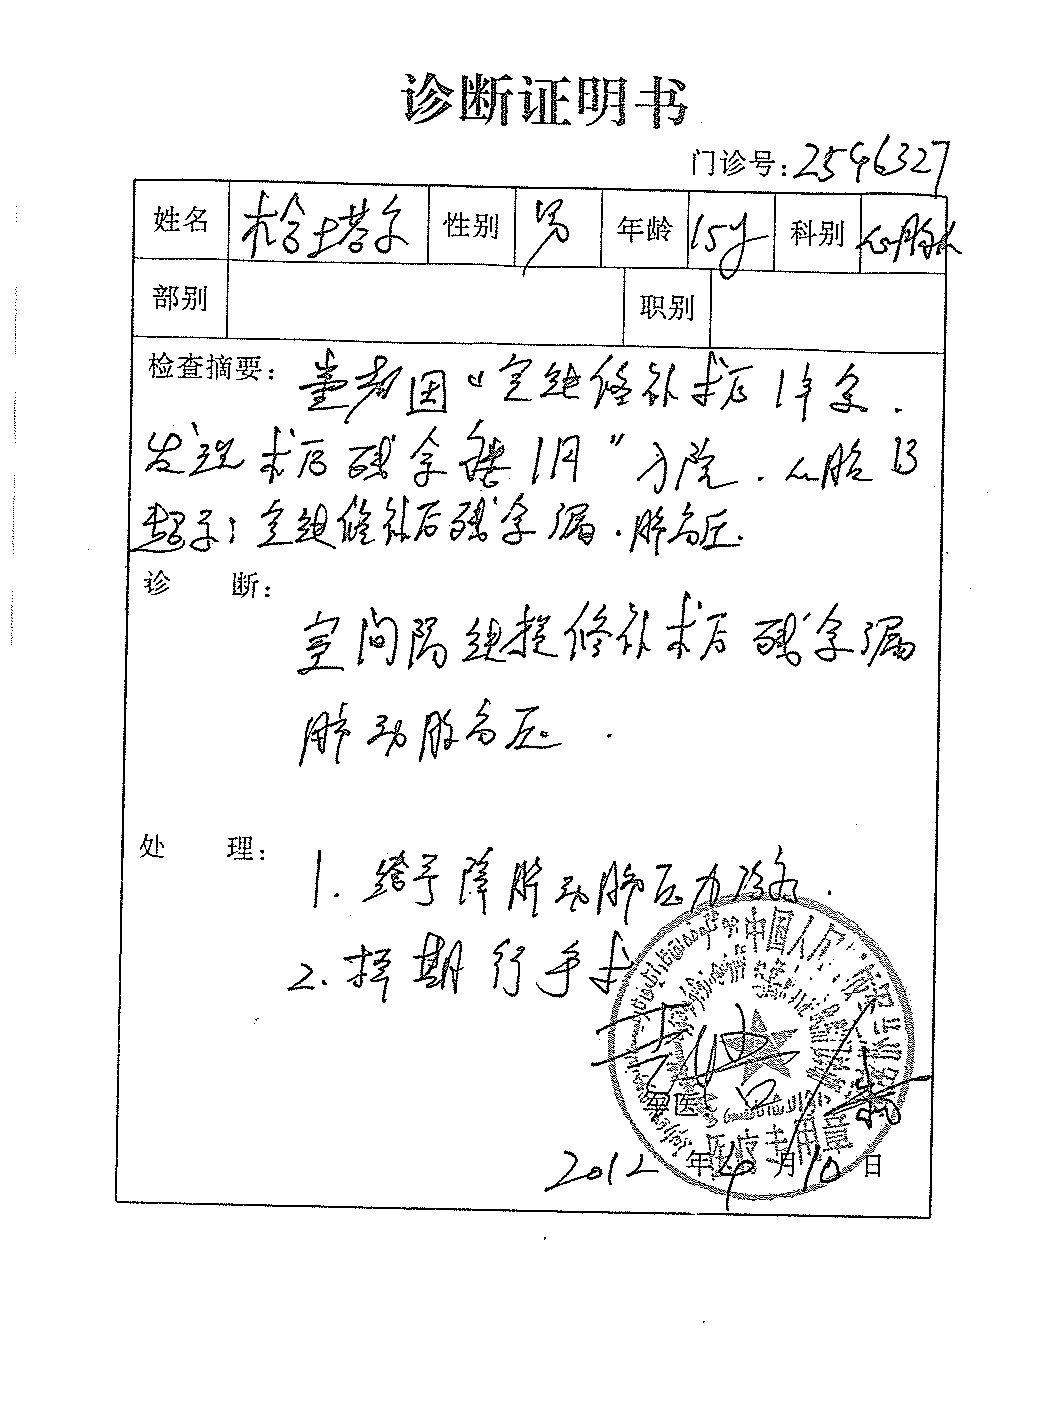 诊断证明书
门诊号: 2546327
姓名 性别 男 年龄 15岁 科别
部别 职别
检查摘要: 患者因“室缺修补术后1年余.
发现术后残余漏1月”入院. 心脏B
超示: 室缺修补后残余漏. 肺高压.
诊 断:
室间隔缺损修补术后残余漏
肺动脉高压.
处 理:
1. 给予降肺动脉压力治疗.
2. 择期行手术
中国人民
医疗专用章
军医
2012年4月10日